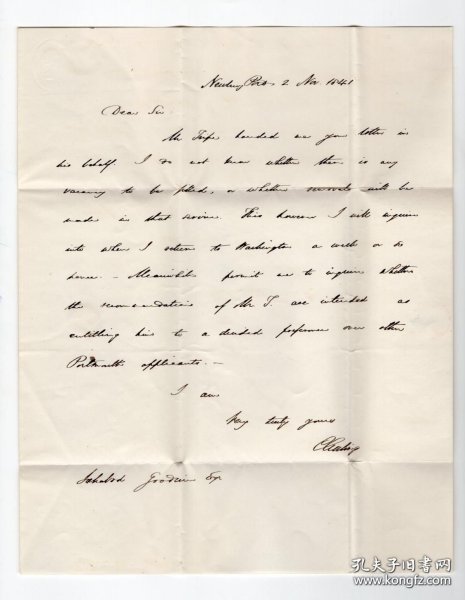 Newbury Port 2 Nov 1841
Dear Sir
Mr handed me your letter in
his behalf. I do not know whether there is any
vacancy to be filled, or whether removals will be
made in that service. This however I will inquire
into when I return to Washington a week or so
hence. - Meanwhile permit me to inquire whether
the recommendations of Mr T. are intended as
entitling him to a decided preference over other
Portsmouth applicants. -
I am
Very truly yours
C Cushing
Ichabod Goodwin Esq
孔夫子旧书网
www.kongfz.com